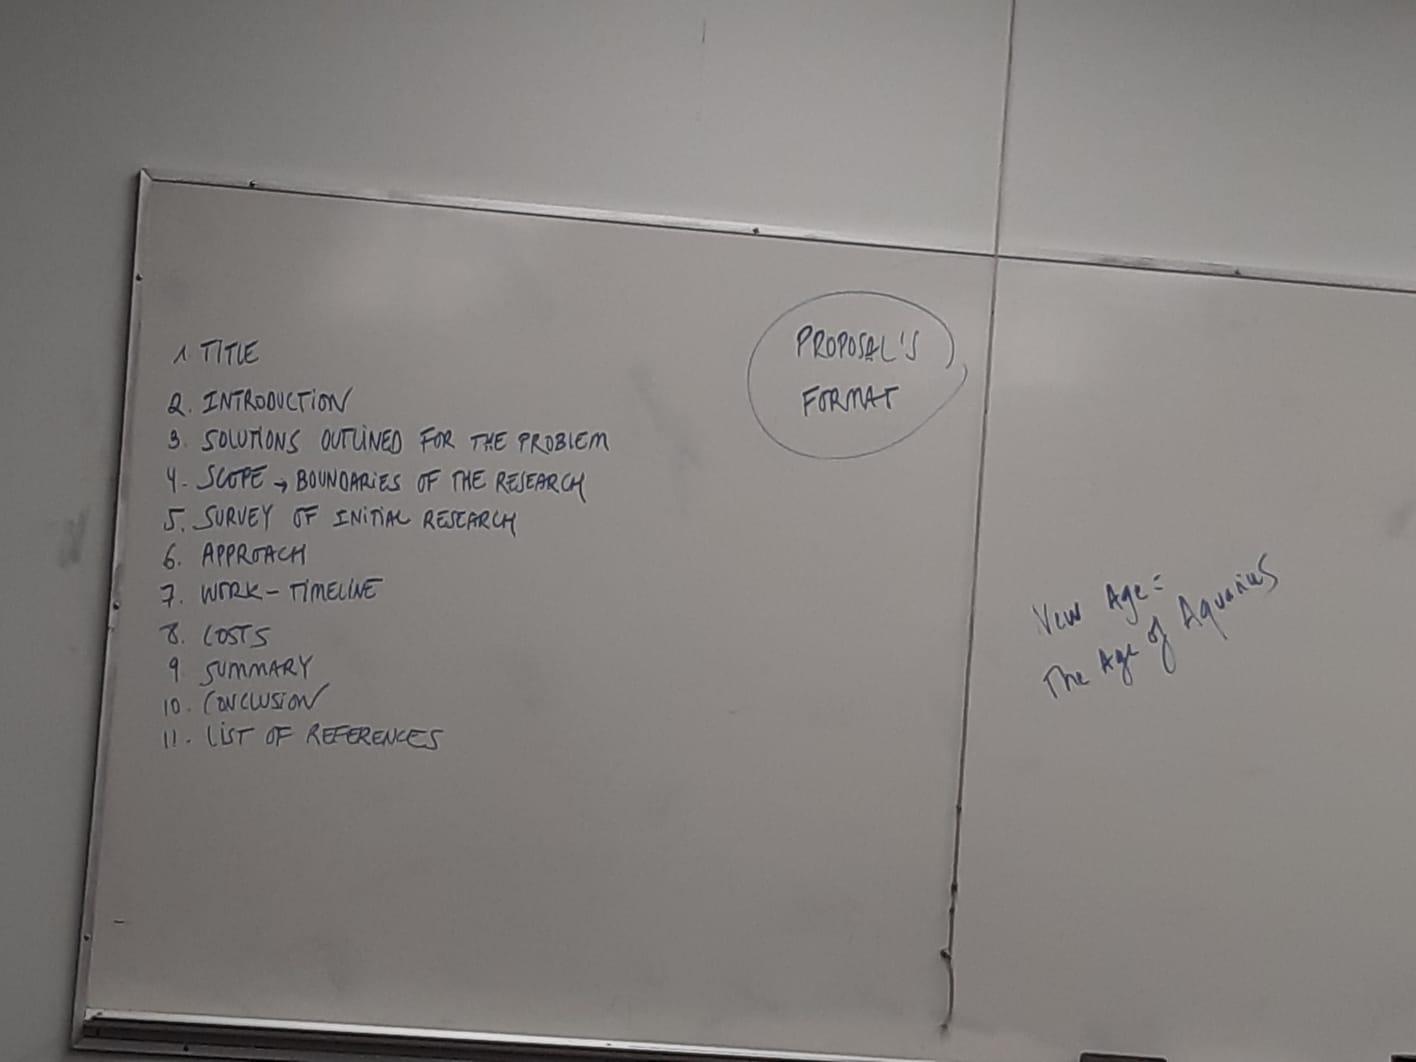 1. TITLE
2. INTRODUCTION
3. SOLUTIONS OUTLINED FOR THE PROBLEM
4- SCOPE → BOUNDARIES OF THE RESEARCH
5. SURVEY OF INITIAL RESEARCH
6. APPROACH
7. WORK - TIMELINE
8. COSTS
9. SUMMARY
10. CONCLUSION
11. LIST OF REFERENCES
PROPOSAL'S
FORMAT
New Age =
The Age of Aquarius